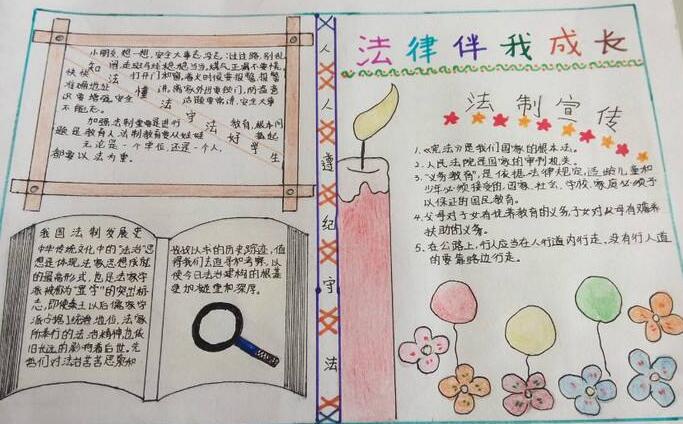 法律伴我成长
小朋友,想一想,安全大事忘没忘,过往路,别乱
闯,走斑马线
打开门和窗,着火时候要报警,报警
准确地址
讲,离家外出要锁门,防盗意
识要增强,安全
话题常常讲,安全大事
不能忘。
知法
懂法
守法
好学生
加强法制
是进行
教育,根本问
题是教育人,法制教育要从娃娃
抓起
无论是一个学位,还是一个人,
都要以法为重。
我国法制发展史
中华传统文化中的“法治”思
想是体现法家思想成就
的最高形式,也是法家学
派被称为“显学”的突出标
志,即使秦王以后儒家学
派占据了统治地位,法家
所奉行的法治精神,也依
旧长远的影响着后世。先
他们对法治苦苦思索和
我说以本的历史踪迹,值
得我们去追寻和考察,以
使今日法治建构的根基
更加稳重和深厚。
人人遵纪守法
法制宣传
1.《宪法》是我们国家的根本法。
2.人民法院是国家的审判机关。
3.“义务教育”,是依据法律规定,适龄儿童和
少年必须接受的,国家、社会、学校、家庭必须予
以保证的国民教育。
4.父母对子女有抚养教育的义务,子女对父母有赡养
扶助的义务。
5.在公路上,行人应当在人行道内行走,没有行人道
的要靠路边行走。